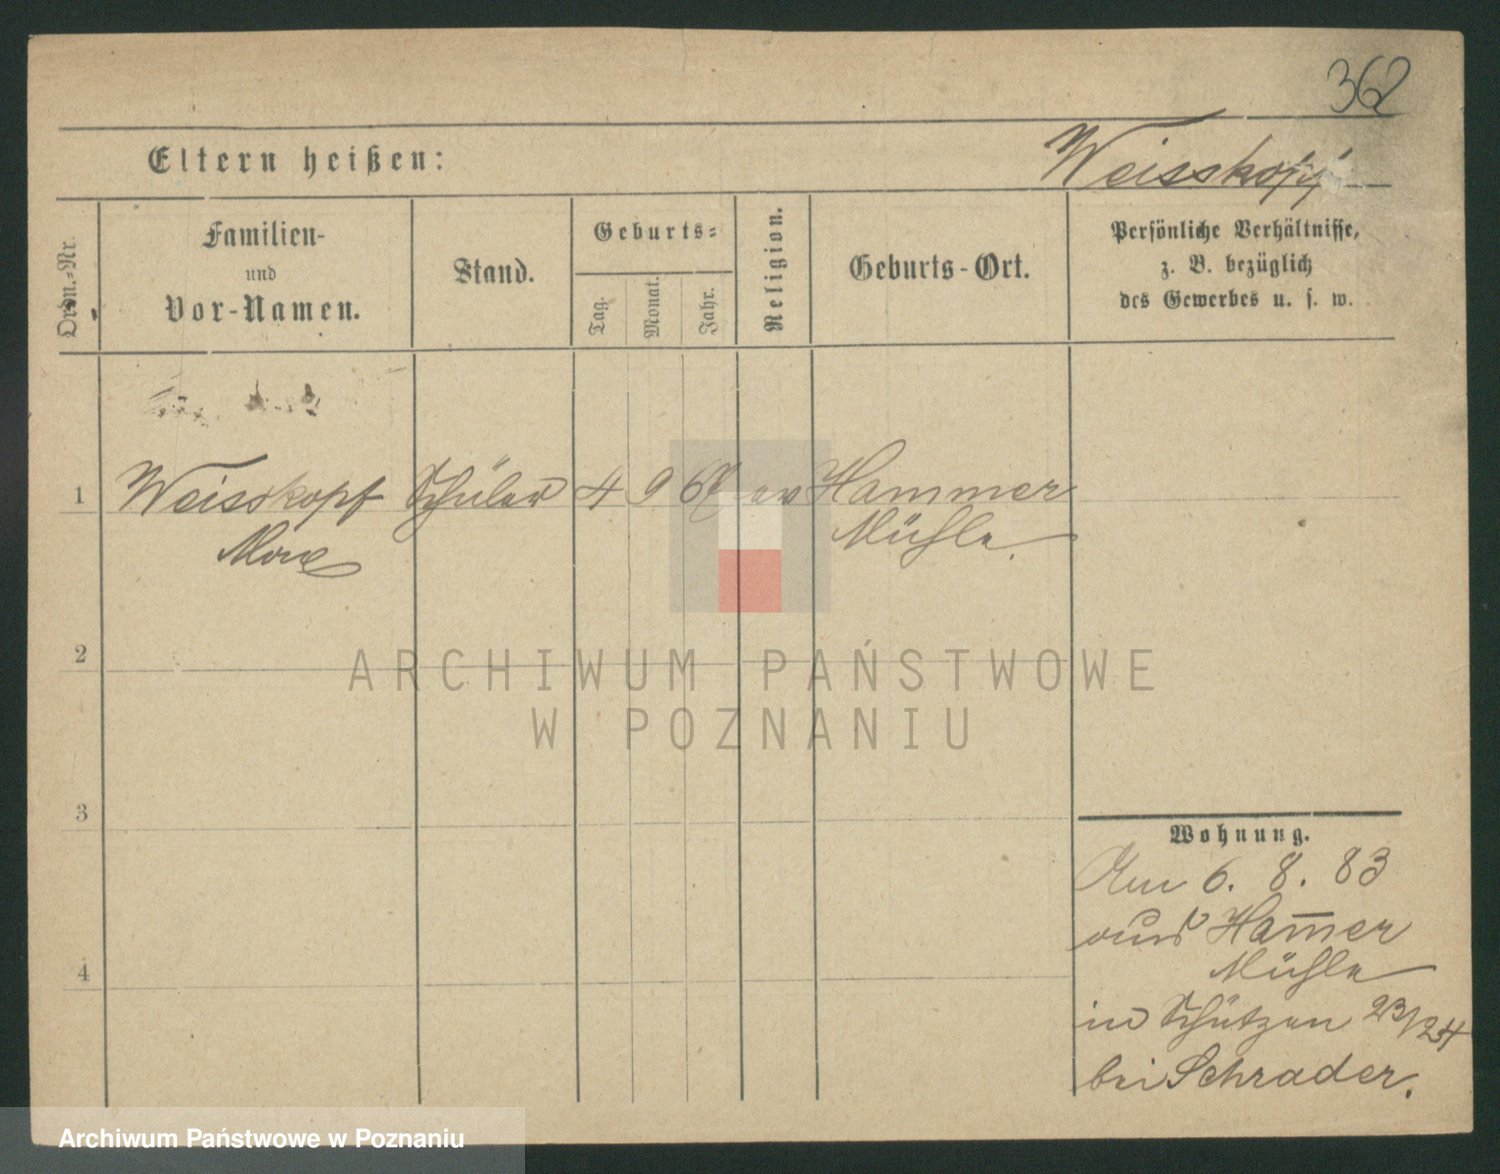 362
Eltern heißen:
Weisskopf
Ordn.-Nr.
Familien-
und
Vor-Namen.
Stand.
Geburts-
Tag.
Monat.
Jahr.
Religion.
Geburts-Ort.
Persönliche Verhältnisse,
z. B. bezüglich
des Gewerbes u. s. w.
1 Weisskopf Schüler 4 9 67 ev Hammer
Max Mühle.
2
3
4
Wohnung.
Am 6. 8. 83
aus Ham̅er
Mühle
in Schützen 23/24
bei Schrader.
ARCHIWUM PAŃSTWOWE
W POZNANIU
Archiwum Państwowe w Poznaniu